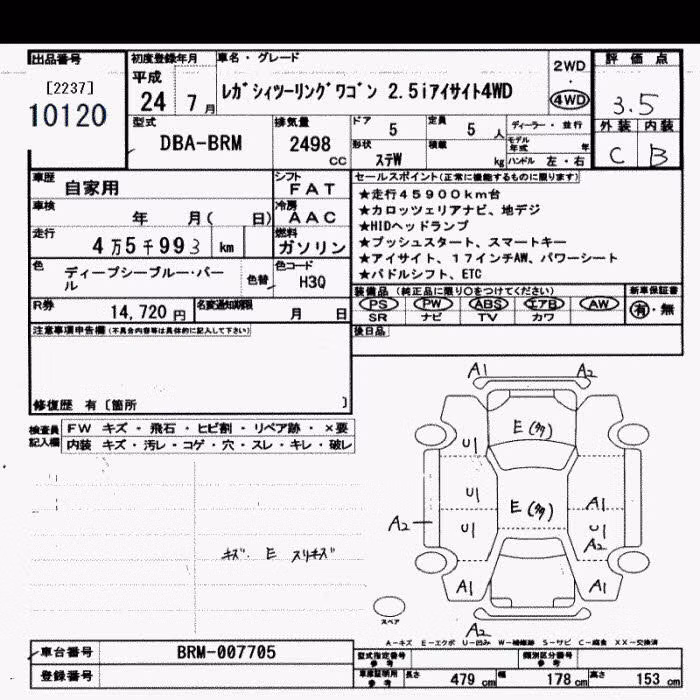 出品番号
[2237]
10120
初度登録年月
平成
24 7月
車名・グレード
レガシィツーリングワゴン 2.5iアイサイト4WD
2WD
・
4WD
評価点
3.5
外装 内装
C B
型式
DBA-BRM
排気量
2498 cc
ドア 5
定員 5 人
形状 ステW
積載 kg
ディーラー・並行
モデル年式 年
ハンドル 左・右
車歴 自家用
シフト FAT
車検 年 月( 日)
冷房 AAC
走行 4万5千993 km
燃料 ガソリン
色 ディープシーブルー・パール
色替
色コード H3Q
R券 14,720円
名変通知期限 月 日
セールスポイント(正常に機能するものに限ります)
★走行45900km台
★カロッツェリアナビ、地デジ
★HIDヘッドランプ
★プッシュスタート、スマートキー
★アイサイト、17インチAW、パワーシート
★パドルシフト、ETC
装備品(純正品に限り○をつけてください)
PS PW ABS エアB AW
SR ナビ TV カワ
新車保証書
有・無
後日品
注意事項申告欄(不具合内容等は具体的に記入して下さい)
修復歴 有〔箇所 〕
検査員記入欄
FW キズ・飛石・ヒビ割・リペア跡・×要
内装 キズ・汚レ・コゲ・穴・スレ・キレ・破レ
キズ・E スリキズ
A1 A2
E(多)
U1
U1 E(多) A1
A2 U1 U1
A2
A1 A1
スペア
A2
A-キズ E-エクボ U-凹み W-補修跡 S-サビ C-腐食 XX-交換済
車台番号 BRM-007705
登録番号
型式指定番号 参考
類別区分番号 参考
車庫証明用 参考 長さ 479 cm 幅 178 cm 高さ 153 cm